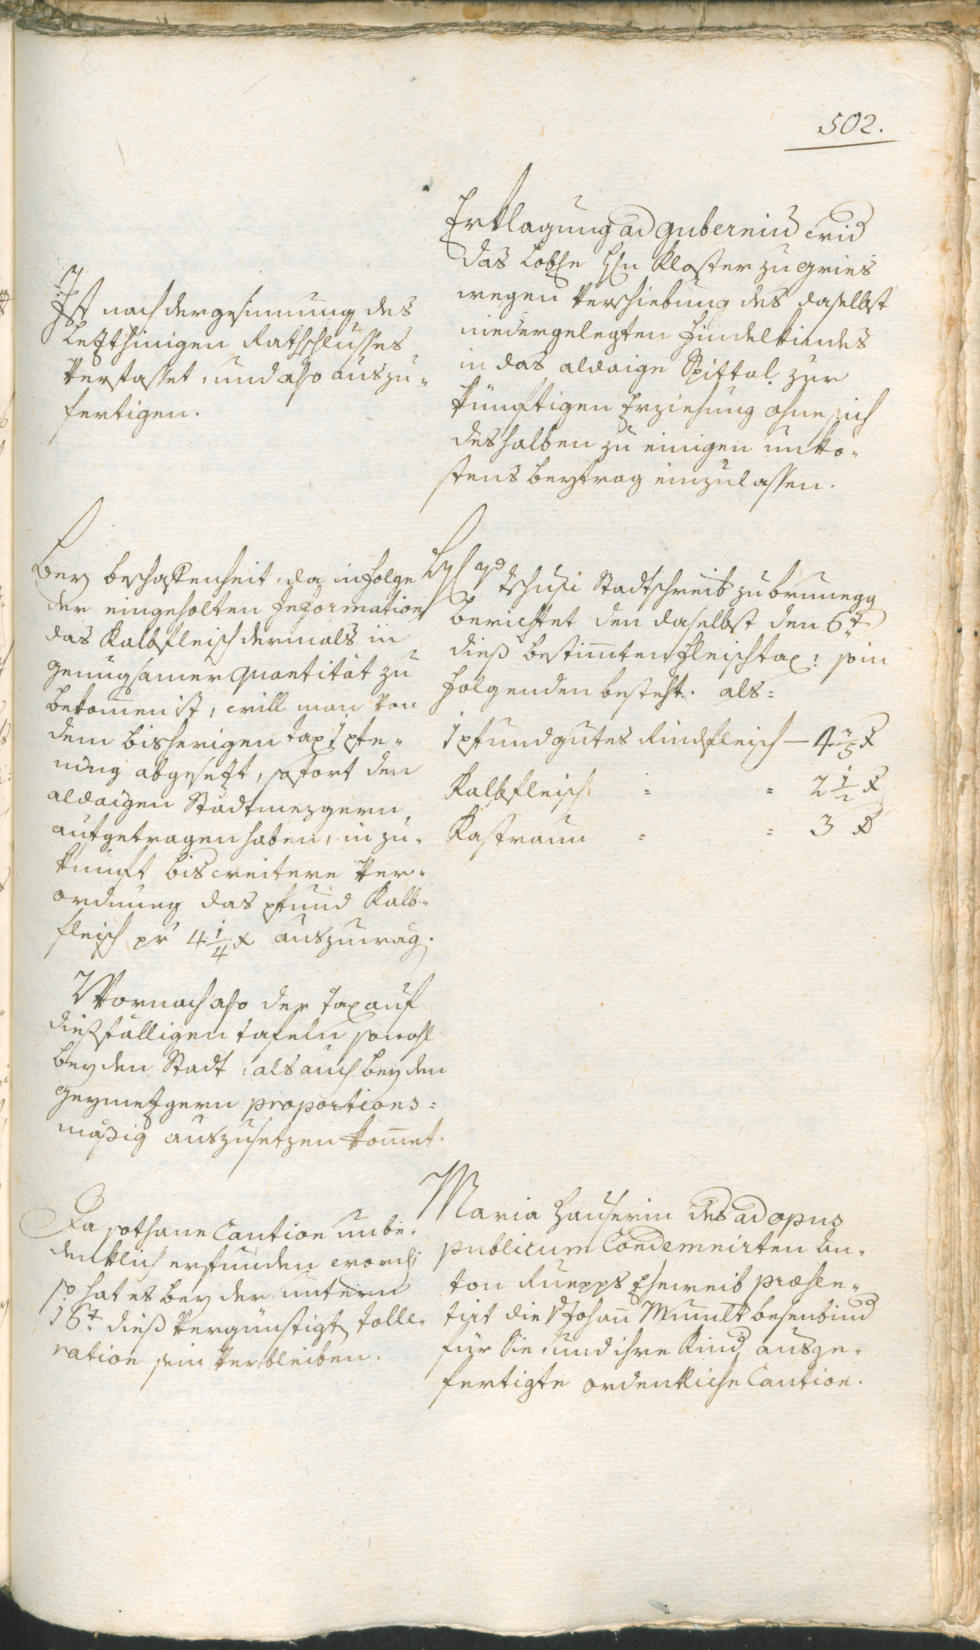 502.
Erklagung ad gubernium wid
das Lobhe Hln Kloster zu Gries
wegen Verschiebung des daselbst
niedergelegten Findelkindes
in das aldaige Spittal zur
künftigen Erziehung ohne sich
deshalben zu einigen unko-
stens beytrag einzulassen.
Ist nach der gesinnung des
Letzthinigen Rathschlusses
verfasset, und also auszu-
fertigen.
Tschusi Stadtschreib zu brunegg
berichtet den daselbst den 6t
dieß bestimten fleischtax: so in
folgenden besteht. als:
1 pfund gutes Rindfleisch — 4 x
Kalbfleisch = = 2 1/2 x
Kastraun = = 3 x
Bey beschaffenheit, da in folge
der eingeholten Information
das Kalbfleisch dermals in
genugsamer quantität zu
bekomen ist, will man von
dem bisherigen tax 1 pfe-
ning abgesezt, sofort den
aldaigen Stadtmezgern
aufgetragen haben, in zu-
kunft bis weitere Ver-
ordnung das pfund Kalb-
fleisch pr 4 1/4 x auszuwäg.
Wornach also der tax auf
dießfälligen tafeln sowohl
bey den Stadt: als auch bey den
Geymetzgern proportions-
mäßig auszusetzen komet.
Maria Hauserin des ad opus
publicum Condemnirten An-
ton Ruepps Eheweib præsen-
tirt die v Johan Munlt besenbind
für Sie, und ihre Kind ausge-
fertigte ordentliche Caution.
Da sothane Caution unbe-
denklich erfunden word
so hat es bey der unterm
16t dieß vergünstigt tolle-
ration sein verbleiben.